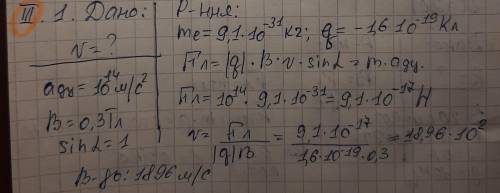 III. 1. Дано:
v = ?
aдц = 10¹⁴ м/с²
B = 0,3 Тл
sin L = 1
Р-ння:
me = 9,1 · 10⁻³¹ кг; q = -1,6 · 10⁻¹⁹ Кл
Fл = |q| · B · v · sin L = m · aдц.
Fл = 10¹⁴ · 9,1 · 10⁻³¹ = 9,1 · 10⁻¹⁷ Н
v = Fл / |q|B = 9,1 · 10⁻¹⁷ / -1,6 · 10⁻¹⁹ · 0,3 = 18,96 · 10²
В-дь: 1896 м/с